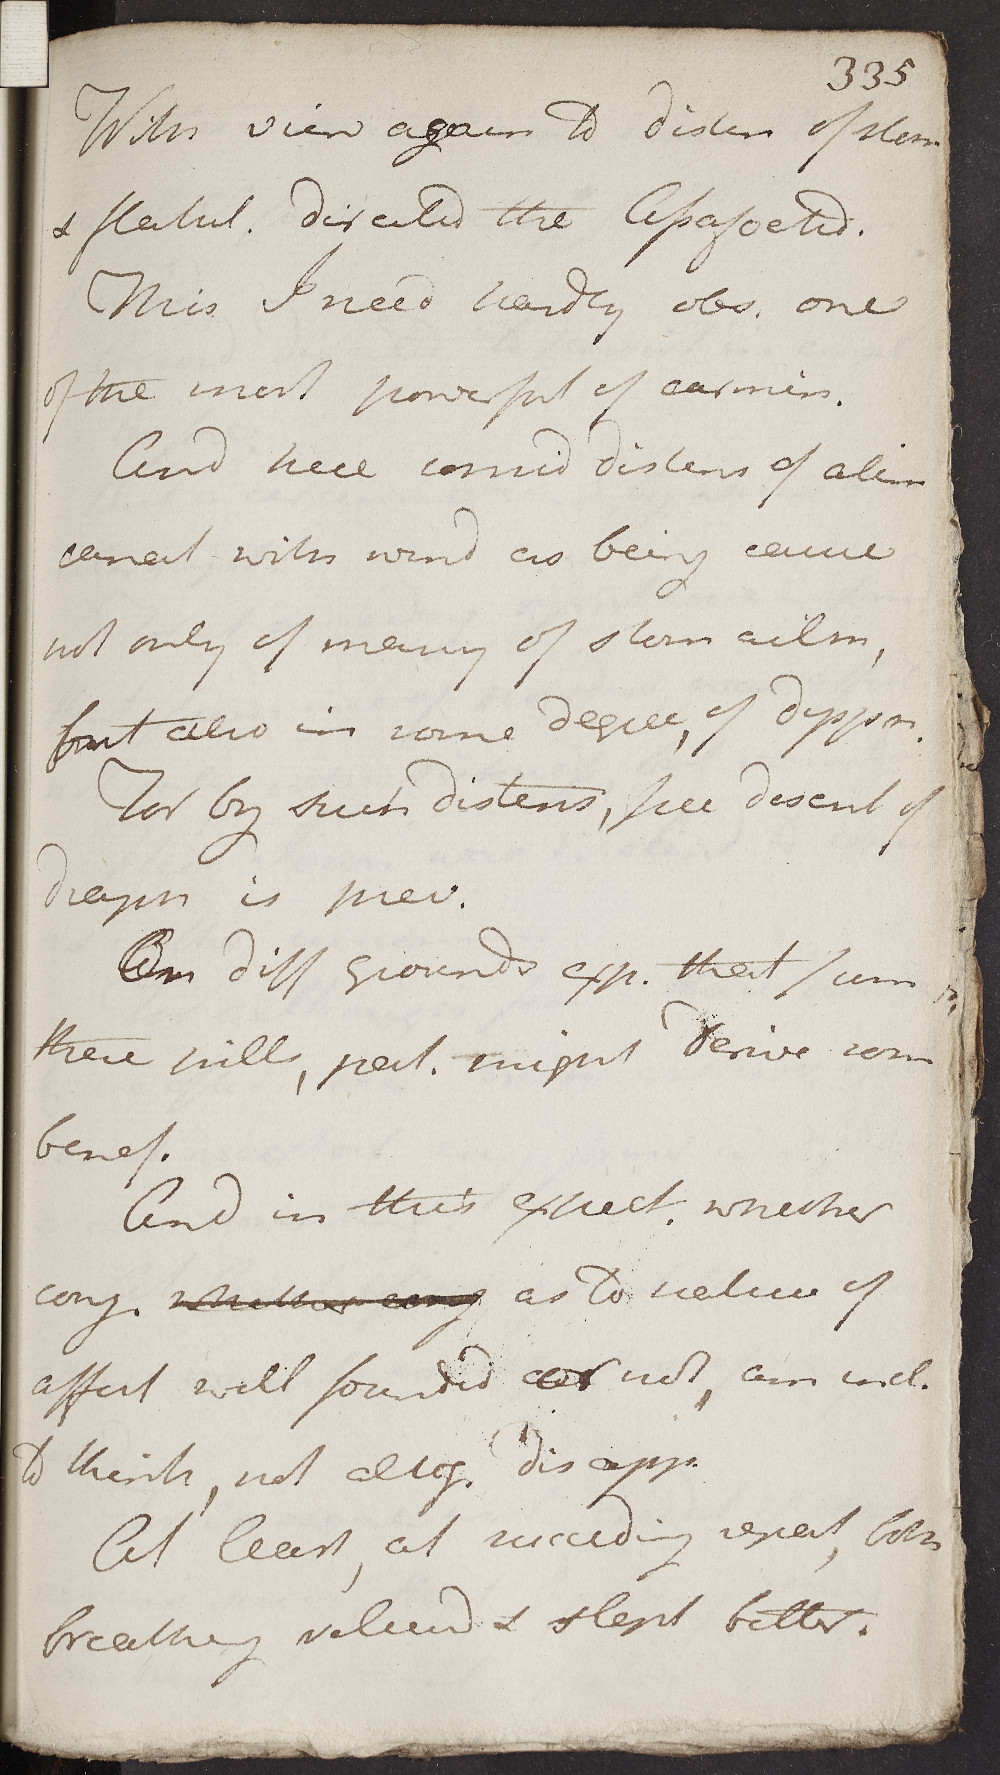 335
With view again to disten of stom
& flatul. directed the Assafoetid.
This I need hardly obs. one
of the most powerful of carmin.
And here consid distens of alim
canal with wind as being cause
not only of many of stom ailm,
but also in some degree, of dyspn.
For by such distens, free descent of
diaphr is prev.
On diff grounds exp. that from
these pills, pat. might derive som
benef.
And in this expect. whether
conj. whether conj as to nature of
affect well founded or not, am incl.
to think, not altog. disapp.
At least, at succeeding report, both
breathing reliev'd & slept better.